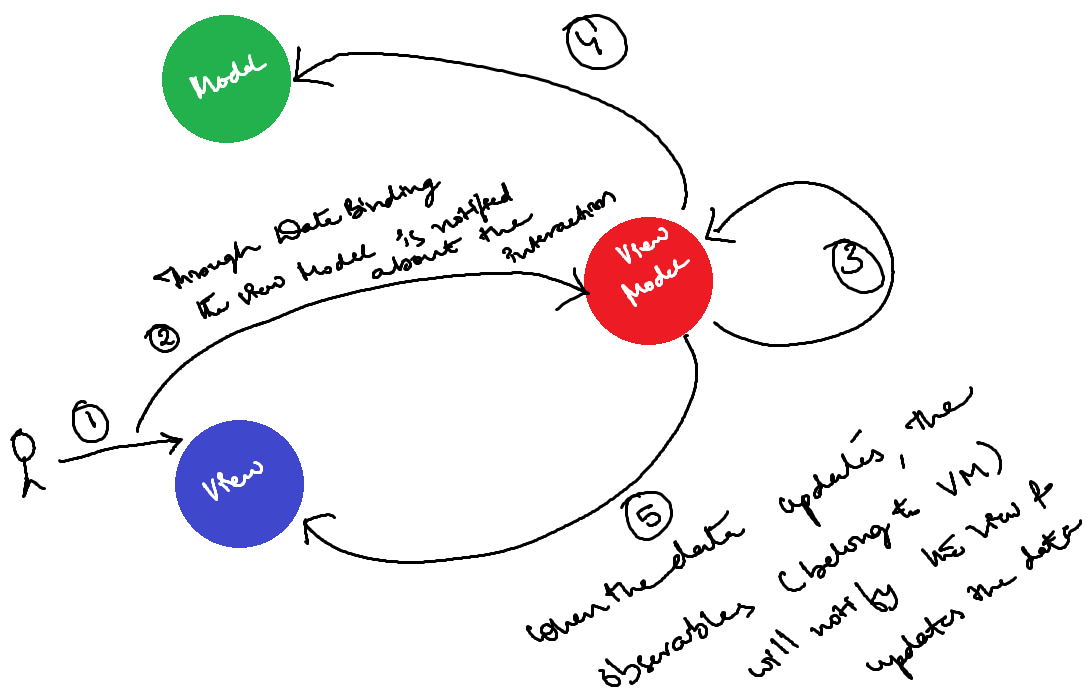 4
Model
Through Data Binding
the view Model is notified
about the
interaction
View
Model
3
2
1
View
5
when the data updates, the
observables (belong to VM)
will notify the view &
updates the data